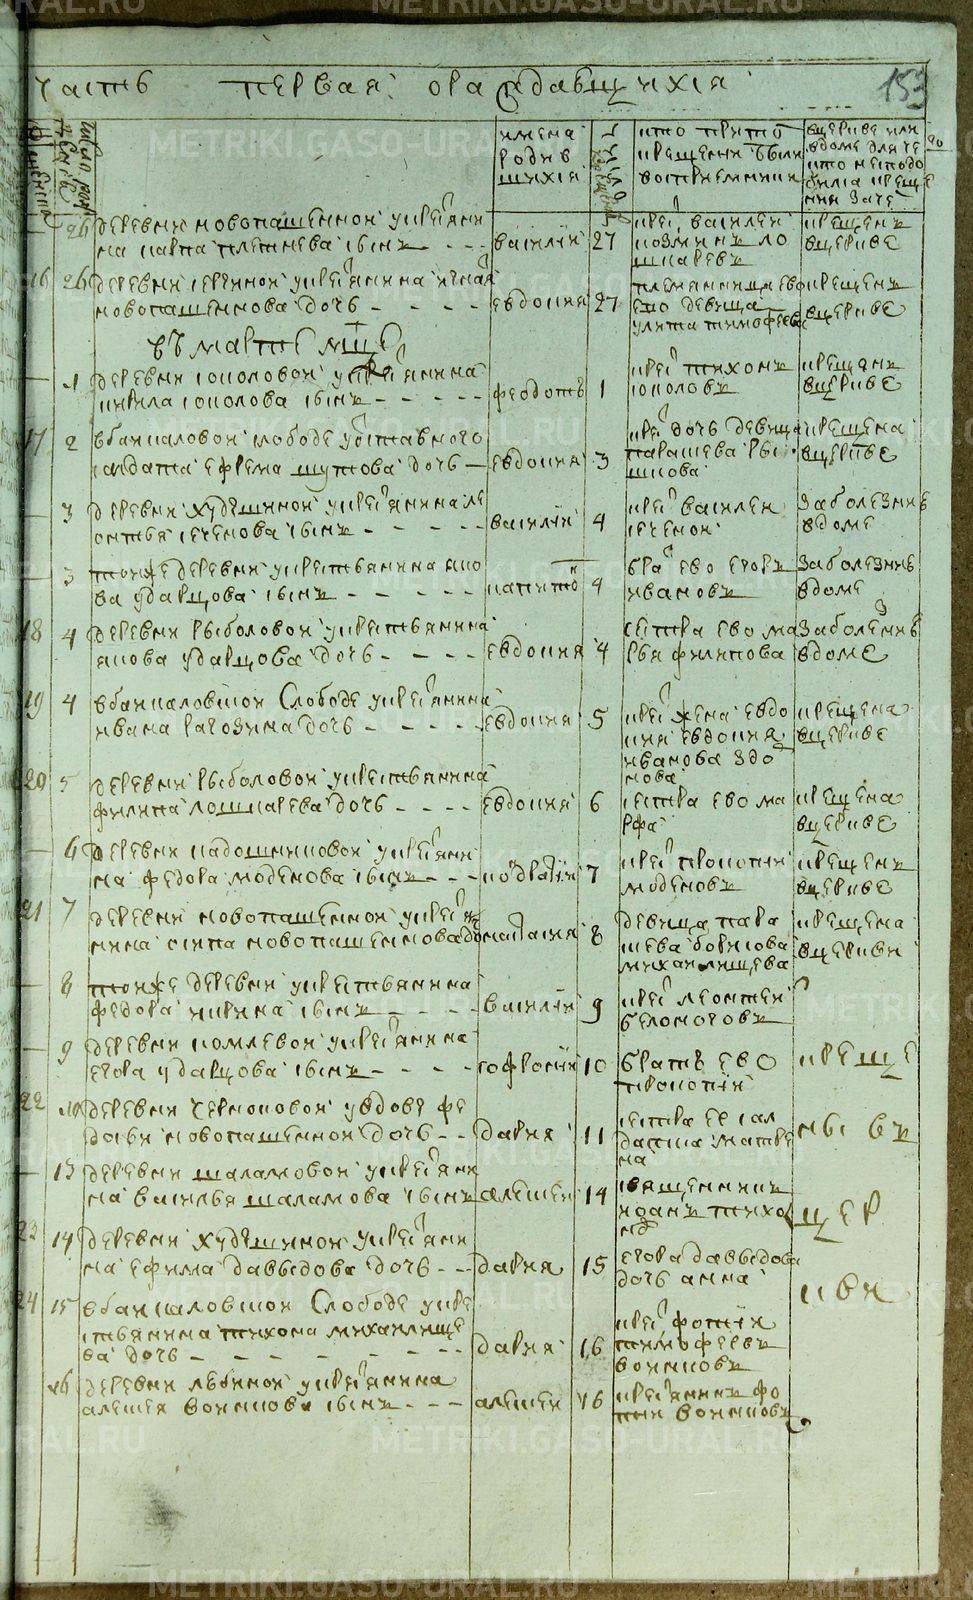 часть первая о раждавшихся
153
имена родившихся
кто при том крещении были восприемники
в церкве или в доме для чего
26 деревни новопашенной у крестьянина карпа плетнева сынъ василий 27 кре василей козминъ лошкаревъ крещенъ в церкве
16 26 деревни у крестьянина новопашеннова дочь евдокия 27 племянница ево девица улита тимофеева крещена в церкве
въ марте мцѣ
1 деревни соколовой у крестьянина кирила соколова сынъ федотъ 1 кре тихонъ соколовъ крещенъ в церкве
17 2 в баикаловой слободе у отставного салдата ефрема шутова дочь евдокия 3 кре дочь девица парасева крещена в церкве
3 деревни худышиной у крестьянина леонтья сеченова сынъ василий 4 кре василей сеченой за болезние в доме
3 тойже деревни у крестьянина якова ударцова сынъ капитон 4 брат ево егоръ ивановъ за болезние в доме
18 4 деревни рыболовой у крестьянина якова ударцова дочь евдокия 4 сестра ево марья филипова за болезние в доме
19 4 в баикаловской слободе у крестьянина ивана рагозина дочь евдокия 5 кре жена евдокия иванова крещена в церкве
20 5 деревни рыболовой у крестьянина филипа лошкарева дочь евдокия 6 сестра ево марфа крещена в церкве
6 деревни кадошниковой у крестьянина федора моденова сынъ кодратий 7 кре прокопий моденовъ крещенъ в церкве
21 7 деревни новопашенной у крестьянина осипа новопашеннова дочь наталия 8 девица парасева борисова михаилищева крещена в церкви
8 тойже деревни у крестьянина федора сынъ василий 9 кре леонтей белоноговъ
9 деревни комлевой у крестьянина егора ударцова сынъ софроний 10 братъ ево прокопий креще
22 10 деревни черноковой у вдове федосьи новопашенной дочь дария 11 сестра ее салдатка матрена ны въ
13 деревни шаламовой у крестьянина василья шаламова сынъ алексей 14 священникъ иоаннъ тихоновъ цер
23 14 деревни худышиной у крестьянина ефима давыдова дочь дария 15 егора давыдова дочь анна
24 15 в баикаловской слободе у крестьянина тихона михаилищева дочь дария 16 кре фотий тимофеевъ воинковъ кви
16 деревни лыкиной у крестьянина алексея воинкова сынъ алексей 16 крестьянинъ фотий воинковъ